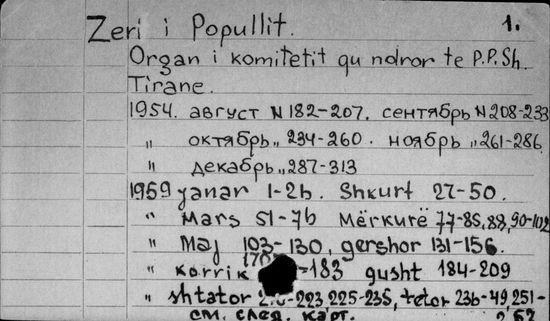 Zeri i Popullit. 1.
Organ i komitetit qu ndror te P.P.Sh.
Tirane.
1954. август N 182-207. сентябрь N 208-233
" октябрь „ 234-260. ноябрь „ 261-286
" декабрь „ 287-313
1959 yanar 1-26. Shkurt 27-50.
" Mars 51-76 Mërkurë 77-85, 88, 90-102
" Maj 103-130, gershor 131-156.
" Korrik -183 gusht 184-209
" shtator -223 225-235, tetor 236-49, 251-
см. след. карт. 252